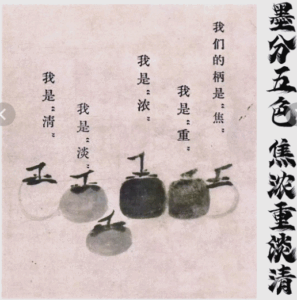 墨分五色 焦浓重淡清
我们的柄是“焦”
我是“重”
我是“浓”
我是“淡”
我是“清”